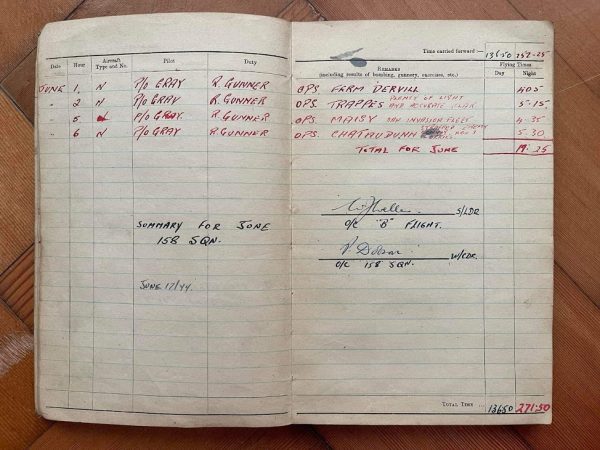 Time carried forward :— 136·50 252-25
Date Hour Aircraft Type and No. Pilot Duty
Remarks (including results of bombing, gunnery, exercises, etc.) Flying Times Day Night
JUNE 1, N P/O GRAY R. GUNNER OPS FERM DERVILL 4·05
2 N P/O GRAY R. GUNNER OPS. TRAPPES PLENTY OF LIGHT AND ACCURATE FLAK. 5·15
5 P/O GRAY. R. GUNNER OPS MAISY SAW INVASION FLEET 4·35
6 N P/O GRAY R GUNNER OPS. CHATAUDUNN 5·30
TOTAL FOR JUNE 19·25
SUMMARY FOR JUNE
158 SQN.
JUNE 17/44.
S/LDR
O/C "B" FLIGHT.
W/CDR.
O/C 158 SQN.
Total Time 136·50 271·50